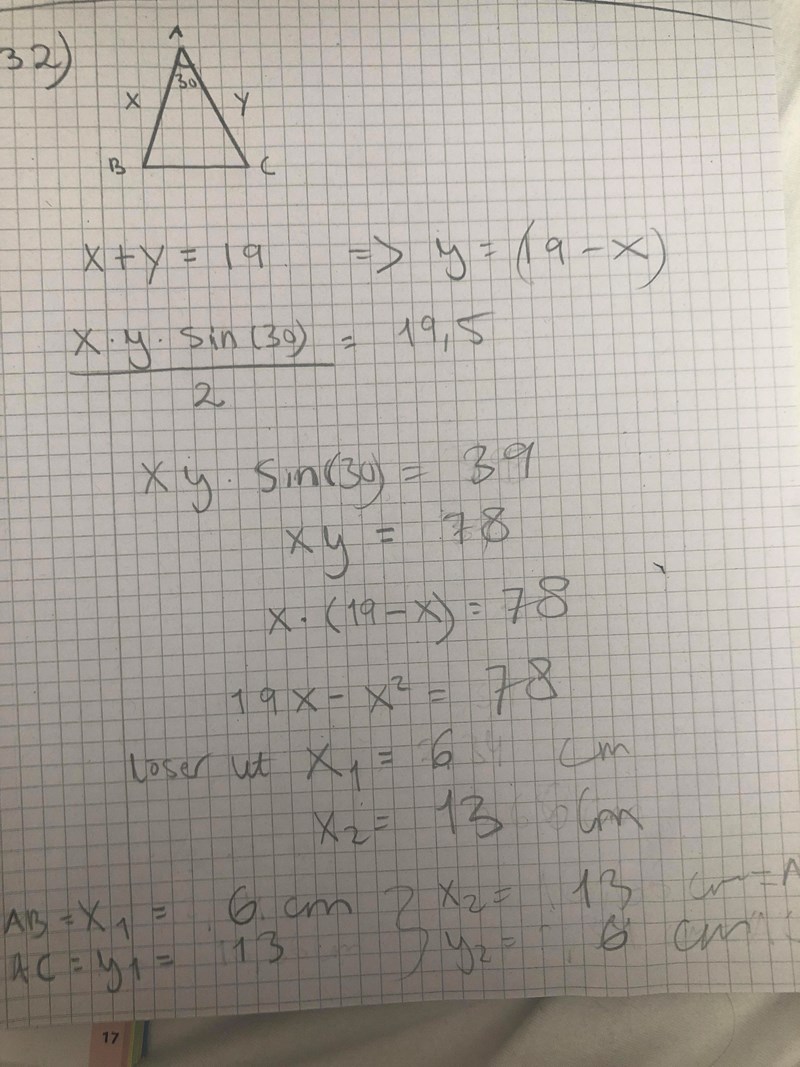 32)
A
30
X Y
B C
x + y = 19 => y = (19 - x)
x · y · sin(30) = 19,5
2
xy · sin(30) = 39
xy = 78
x · (19 - x) = 78
19x - x² = 78
loser ut x₁ = 6 cm
x₂ = 13 cm
AB = x₁ = 6 cm } x₂ = 13 cm = A
AC = y₁ = 13 y₂ = 6 cm
17